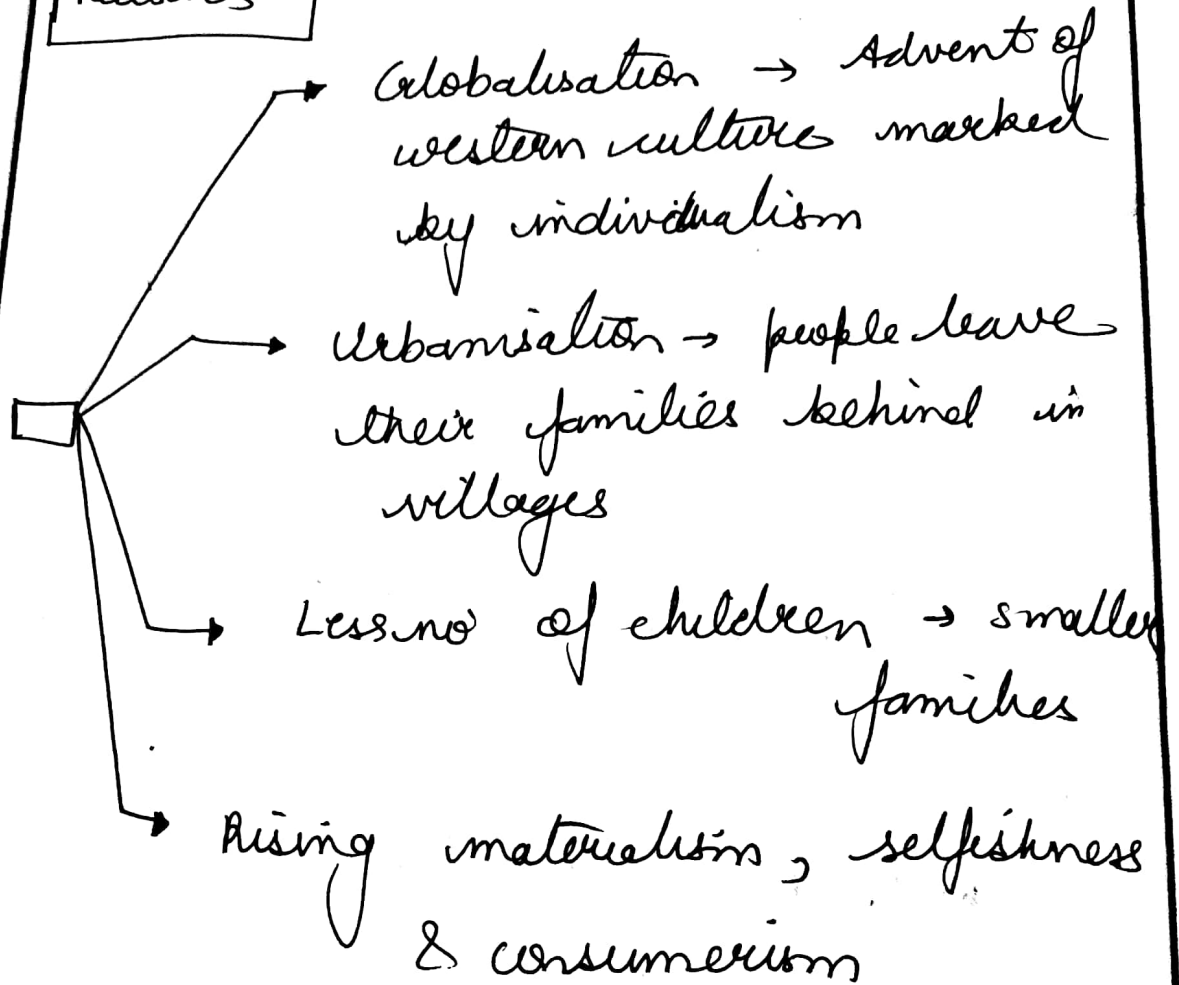 Globalisation → Advent of
western culture marked
by individualism
Urbanisation → people leave
their families behind in
villages
Less no of children → smaller
families
Rising materialism, selfishness
& consumerism